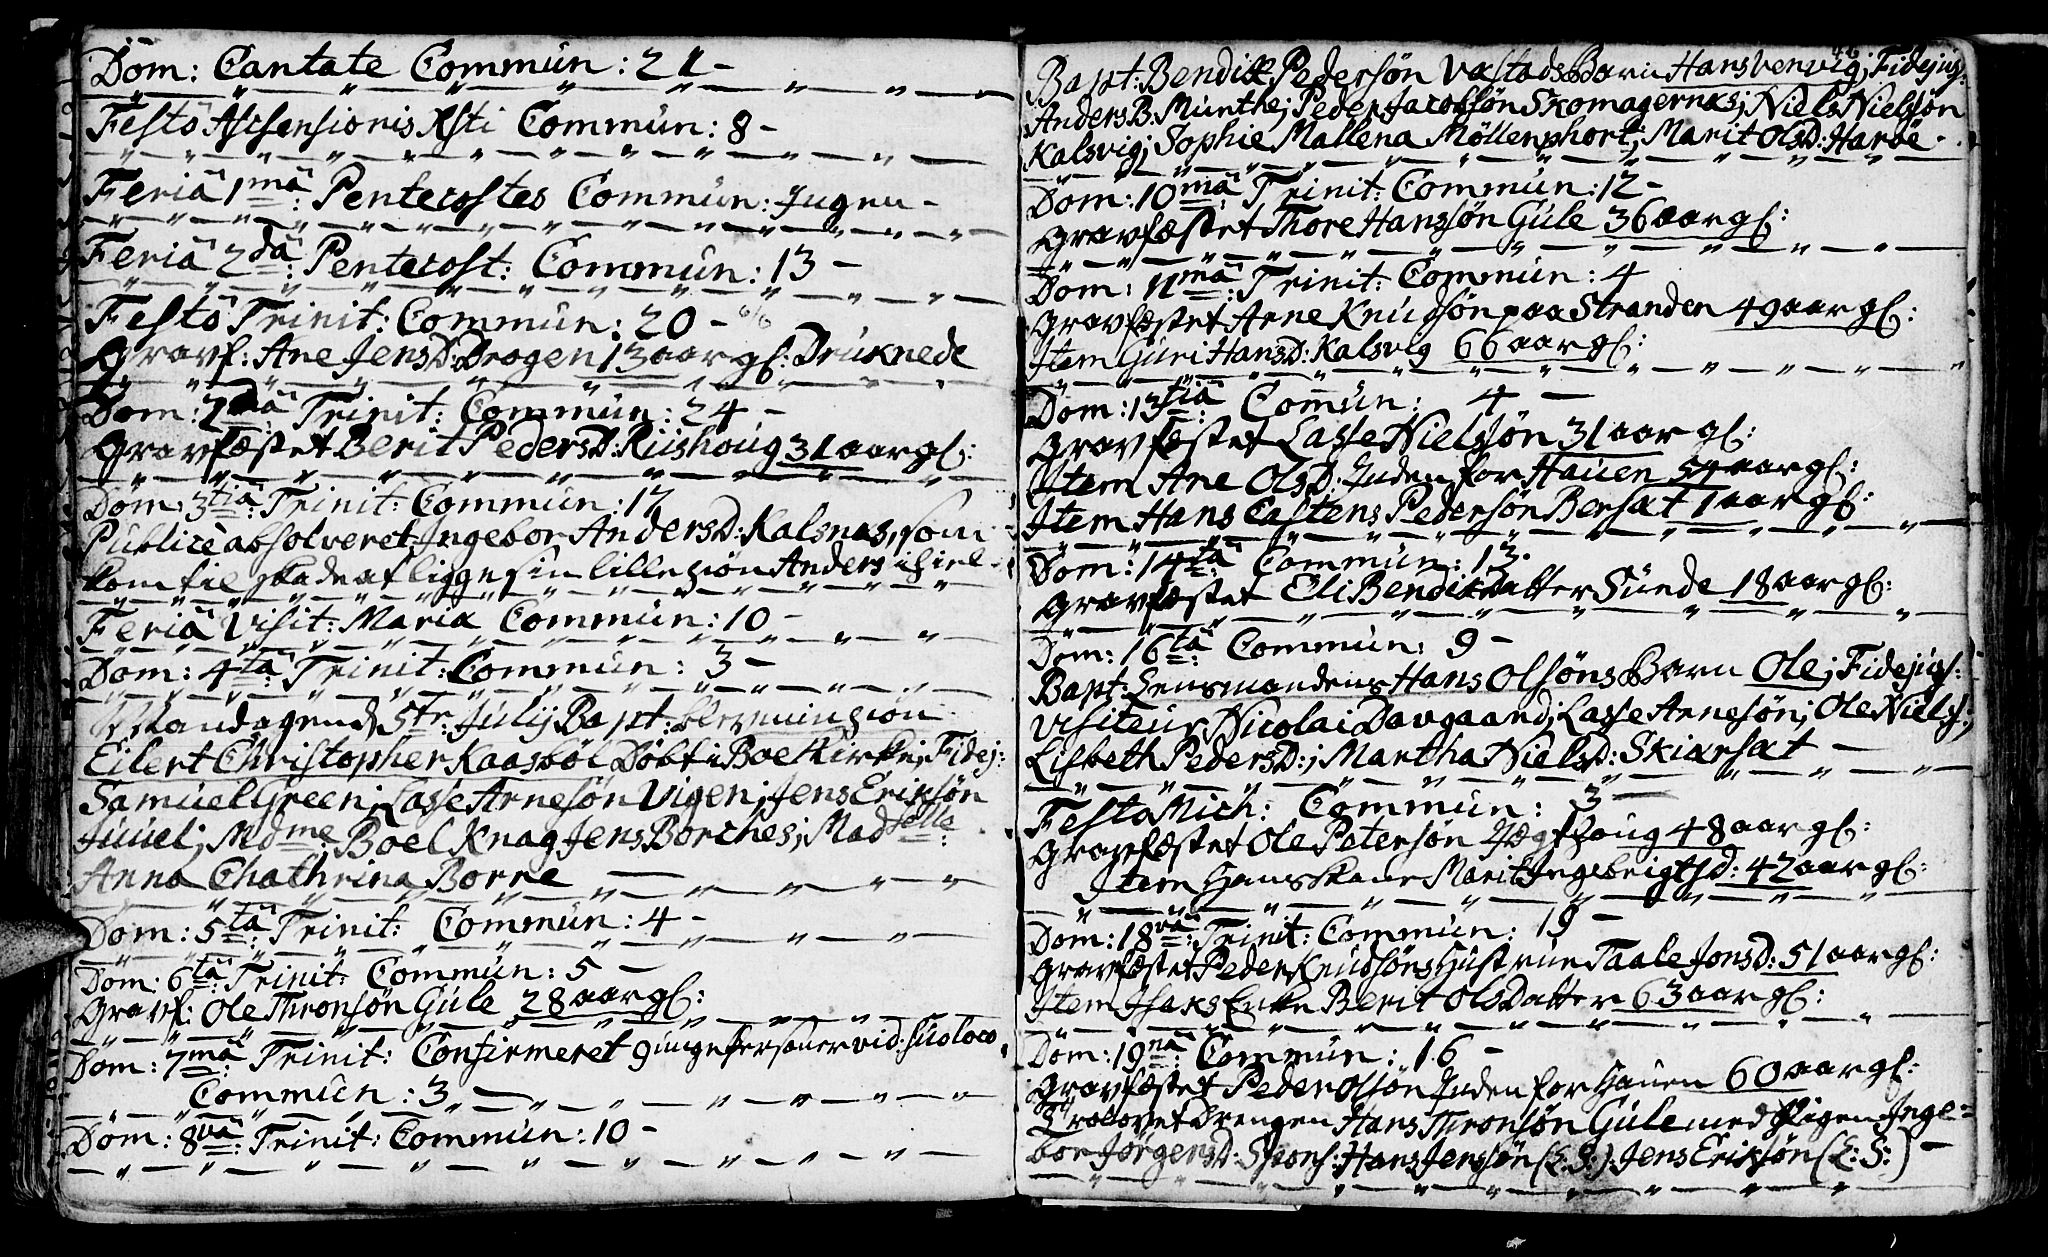 Dom: Cantate Commun: 21 -
Festo Ascensionis Xsti Commun: 8 -
Feriâ 1mâ: Pentecostes Commun: Ingen -
Feriâ 2dâ: Pentecost: Commun: 13 -
Festo Trinit: Commun: 20 - 6/6
Gravf: Ane JensD: Drogen 13 aar gl: Druknede
Dom: 2dâ Trinit: Commun: 24 -
Gravfæstet Berit PedersD: Riishoug 31 aar gl:
Dom: 3tiâ: Trinit: Commun: 17
Publice absolveret Ingebor AndersD: Kalsnas, som
kom til skade at ligge sin lille søn Anders ihiel -
Feriâ Visit: Mariæ Commun: 10 -
Dom: 4tâ: Trinit: Commun: 3 -
Mandagen d 5te Julij Bapt: søn
Eilert Christopher Kaasböl Döbt i Boe Kirke; Fidej:
Samuel Green; Lasse Arnesön Vigen; Jens Eriksön
Juuel; Madme: Boel Knag Jens Borches; Madselle:
Anna Chathrina Borre
Dom: 5tâ: Trinit: Commun: 4 -
Dom: 6tâ: Trinit: Commun: 5 -
Gravf: Ole Thronsön Gule 28 aar gl:
Dom: 7mâ: Trinit: Confirmeret 9 unge Personer vid: suo loco.
Commun: 3
Dom: 8vâ: Trinit: Commun: 10 -
46.
Bapt: Bendix Pedersön Vastads Barn Hans Venvig; Fidejus:
Anders B: Munthe; Peder Jacobsön Skomagernæs; Niels Nielsön
Kalsvig; Sophie Mallena Möllenphort; Marit OlsD: Harøe -
Dom: 10mâ: Trinit: Commun: 12 -
Gravfæstet Thore Hanssön Gule 36 aar gl:
Dom: 11mâ: Trinit: Commun: 4
Gravfæstet Arne Knudsön paa Stranden 49 aar gl:
Item Guri HansD: Kalsvig 66 aar gl:
Dom: 13tiâ: Comun: 4 -
Gravfæstet Lasse Nielssön 31 aar gl:
Item Ane OlsD: Inden for Hauen 59 aar gl:
Item Hans Castens Pedersön Bersæt 1 aar gl:
Dom: 14tâ: Commun: 13.
Gravfæstet Eli Bendixdatter Sunde 18 aar gl:
Dom: 16tâ: Commun: 9 -
Bapt: Lensmandens Hans Olsöns Barn Ole; Fidejus:
Visiteur Nicolai Davgaard; Lasse Arnesön; Ole Niels:;
Lisbeth PedersD:; Martha NielsD: Skiarsæt -
Festo Mich: Commun: 3 -
Gravfæstet Ole Petersön Hægshoug 48 aar gl:
Item Hans Kane Marit Ingebrigtsd: 42 aar gl:
Dom: 18vâ: Trinit: Commun: 19 -
Gravfæstet Peder Knudsöns Hustrue Taale Jonsd: 51 aar gl:
Item Isaks Enke Berit OlsDatter 63 aar gl:
Dom: 19nâ: Commun: 16 -
Gravfæstet Peder Olsön Inden for Hauen 60 aar gl:
Trolovet Drengen Hans Thronsön Gule med Pigen Inge=
bor JörgensD: Spons: Hans Jenssön (L: S:) Jens Eriksön (L: S:) -